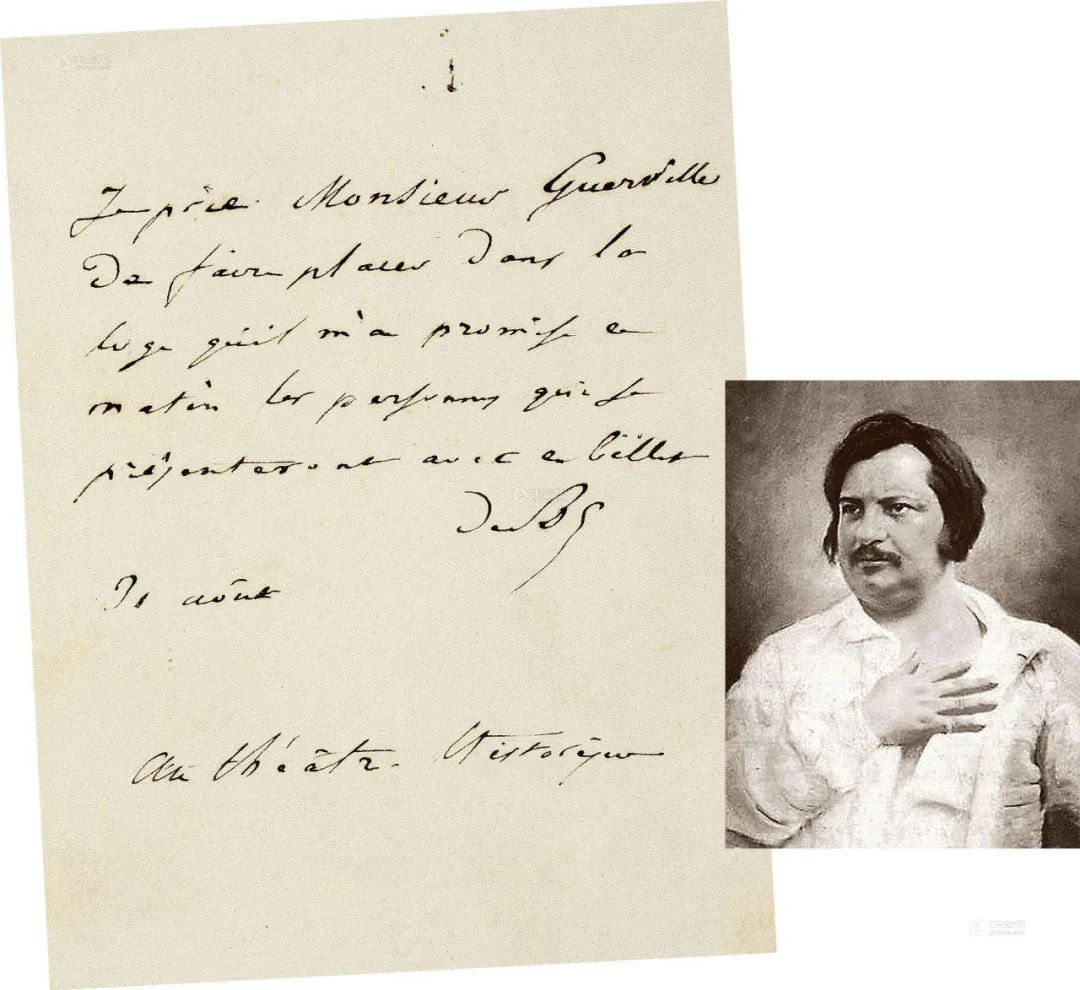 Je prie Monsieur Guerville
De faire placer Dans la
loge qu'il m'a promise ce
matin les personnes qui se
présenteront avec ce billet
De Bc
31 août
au théâtre historique